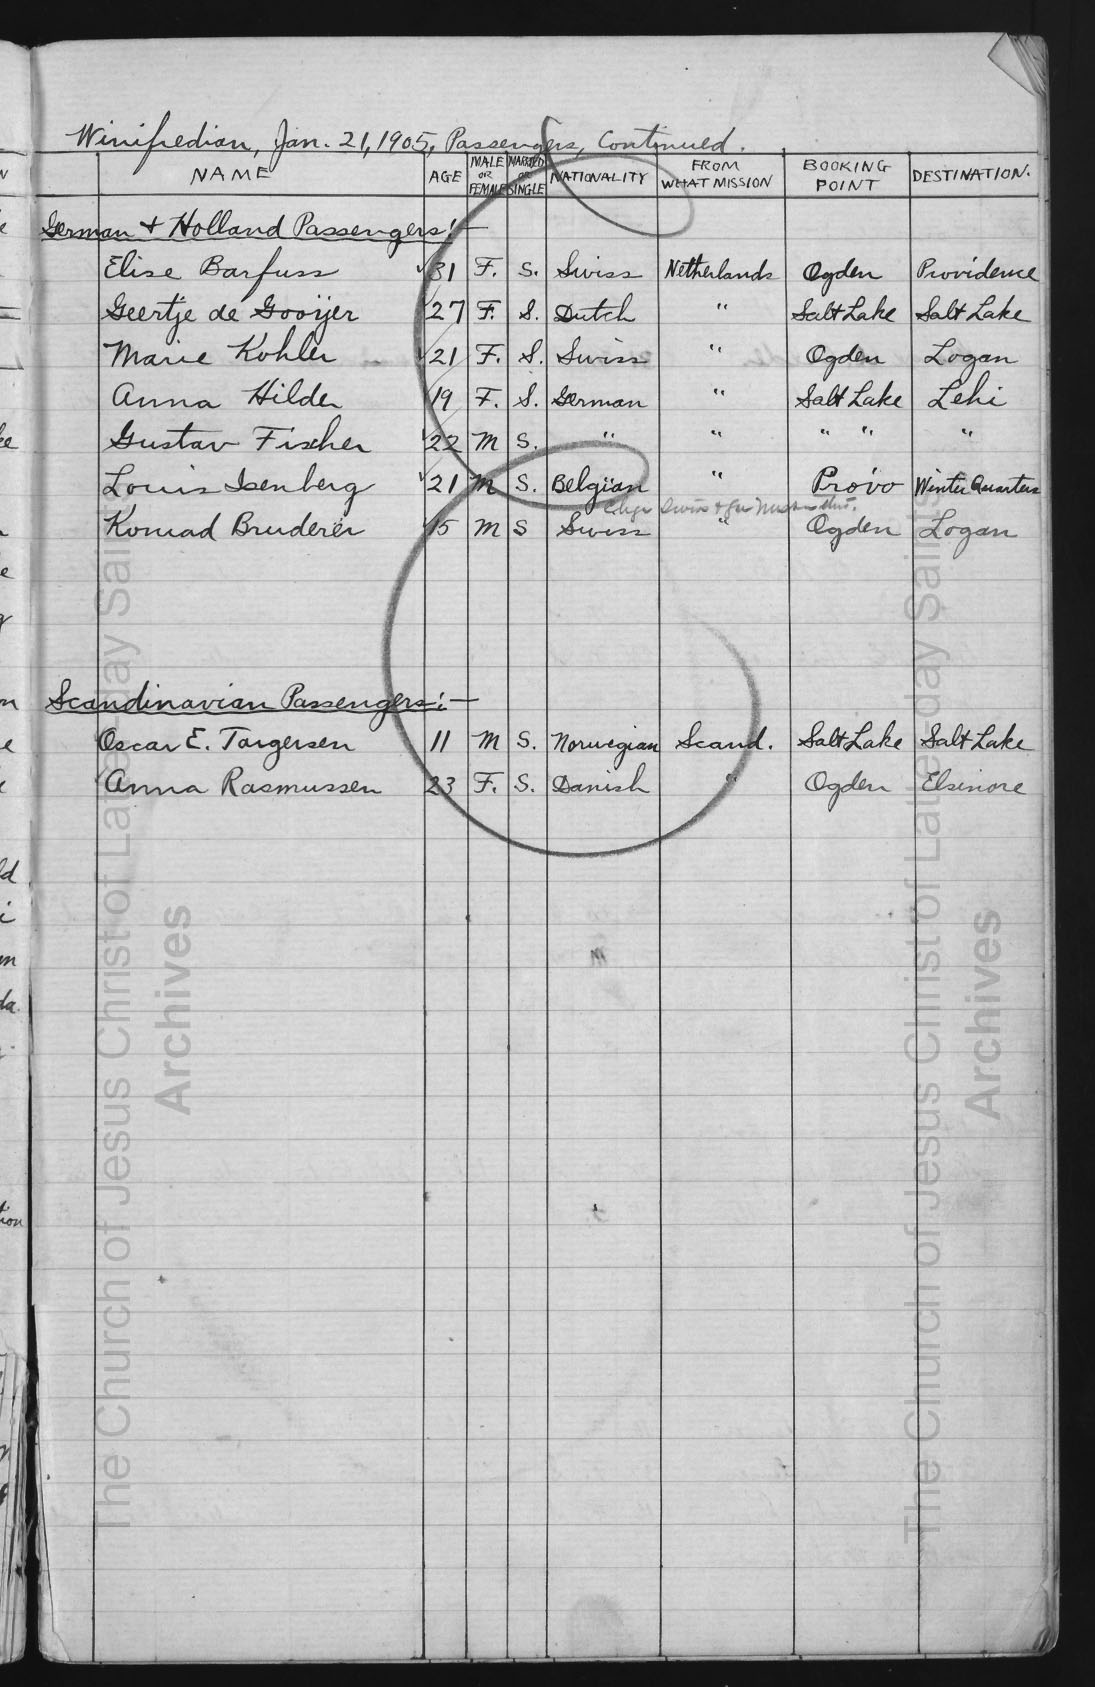 Winifredian, Jan. 21, 1905, Passengers, Continued.
NAME AGE MALE OR FEMALE MARRIED OR SINGLE NATIONALITY FROM WHAT MISSION BOOKING POINT DESTINATION.
German & Holland Passengers:—
Elise Barfuss 31 F. S. Swiss Netherlands Ogden Providence
Geertje de Gooijer 27 F. S. Dutch " Salt Lake Salt Lake
Marie Kohler 21 F. S. Swiss " Ogden Logan
Anna Hilder 19 F. S. German " Salt Lake Lehi
Gustav Fischer 22 M S. " " " " "
Louis Isenberg 21 M S. Belgian " Provo Winter Quarters
Swiss
Konrad Bruderer 15 M S Swiss " Ogden Logan
Scandinavian Passengers:—
Oscar E. Torgersen 11 M S. Norwegian Scand. Salt Lake Salt Lake
Anna Rasmussen 23 F. S. Danish " Ogden Elsinore
The Church of Jesus Christ of Latter-day Saints
Archives
The Church of Jesus Christ of Latter-day Saints
Archives